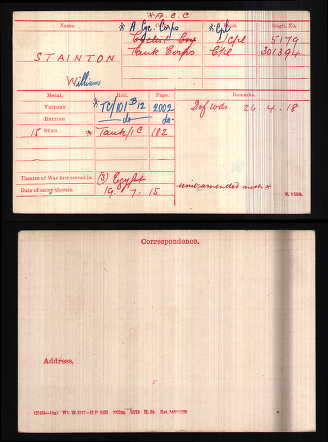 * A.C.C
Name. Corps. Rank. Regtl. No.
* A. Cyc. Corps * Cpl
STAINTON Cyclist Corps L/Cpl 5179
Tank Corps Cpl 301394
William
Medal. Roll. Page. Remarks.
Victory * TC/101 B12 2002 D of Wds 24.4.18
British do do
15 Star * Tank/1C 182
Theatre of War first served in (3) Egypt
Date of entry therein 19.7.15
Correspondence.
Address.